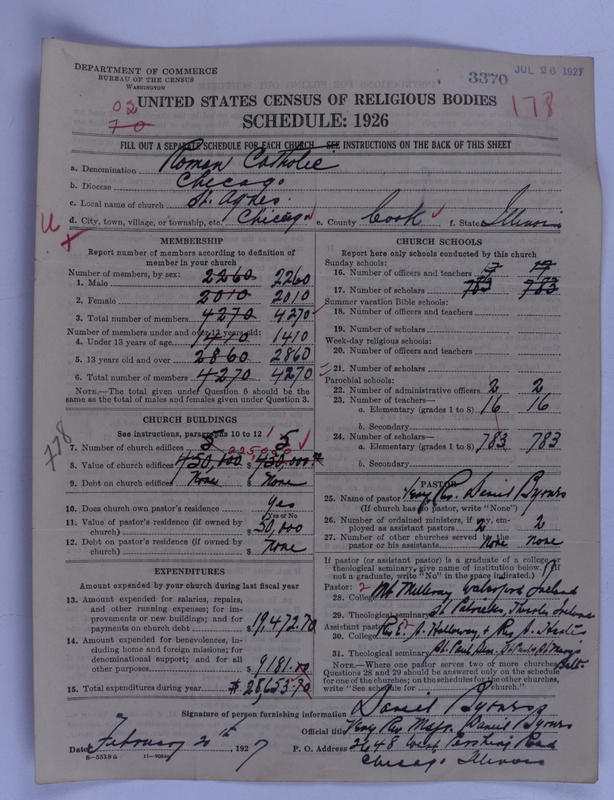 DEPARTMENT OF COMMERCE
BUREAU OF THE CENSUS
WASHINGTON
3370
JUL 26 1927
02
70
178
UNITED STATES CENSUS OF RELIGIOUS BODIES
SCHEDULE: 1926
FILL OUT A SEPARATE SCHEDULE FOR EACH CHURCH SEE INSTRUCTIONS ON THE BACK OF THIS SHEET
a. Denomination Roman Catholic
b. Diocese Chicago
c. Local name of church St. Agnes
d. City, town, village, or township, etc. Chicago e. County Cook f. State Illinois
MEMBERSHIP
Report number of members according to definition of
member in your church
Number of members, by sex:
1. Male 2260 2260
2. Female 2010 2010
3. Total number of members 4270 4270
Number of members under and over 13 years old:
4. Under 13 years of age 1410 1410
5. 13 years old and over 2860 2860
6. Total number of members 4270 4270
NOTE.—The total given under Question 6 should be the
same as the total of males and females given under Question 3.
CHURCH BUILDINGS
See instructions, paragraphs 10 to 12
778
7. Number of church edifices 5 5
8. Value of church edifices 450,000 $ 450,000
9. Debt on church edifices None $ None
10. Does church own pastor's residence Yes
Yes or No
11. Value of pastor's residence (if owned by
church) $ 50,000
12. Debt on pastor's residence (if owned by
church) $ None
EXPENDITURES
Amount expended by your church during last fiscal year
13. Amount expended for salaries, repairs,
and other running expenses; for im-
provements or new buildings; and for
payments on church debt $ 19,472.70
14. Amount expended for benevolences, in-
cluding home and foreign missions; for
denominational support; and for all
other purposes $ 9181.00
15. Total expenditures during year $ 28,653.70
CHURCH SCHOOLS
Report here only schools conducted by this church
Sunday schools:
16. Number of officers and teachers
17. Number of scholars 783 783
Summer vacation Bible schools:
18. Number of officers and teachers
19. Number of scholars
Week-day religious schools:
20. Number of officers and teachers
21. Number of scholars
Parochial schools:
22. Number of administrative officers 2 2
23. Number of teachers—
a. Elementary (grades 1 to 8) 16 16
b. Secondary
24. Number of scholars—
a. Elementary (grades 1 to 8) 783 783
b. Secondary
PASTOR
25. Name of pastor Very Rev. Daniel Byrnes
(If church has no pastor, write "None")
26. Number of ordained ministers, if any, em-
ployed as assistant pastors 2 2
27. Number of other churches served by the
pastor or his assistants none none
If pastor (or assistant pastor) is a graduate of a college or
theological seminary, give name of institution below. (If
not a graduate, write "No" in the space indicated.)
Pastor: 2
28. College Mt Melleray Waterford Ireland
29. Theological seminary St Patricks Thurles Ireland
Assistant pastor:
30. College
31. Theological seminary
NOTE.—Where one pastor serves two or more churches
Questions 28 and 29 should be answered only on the schedule
for one of the churches; on the schedules for the other churches,
write "See schedule for church."
Signature of person furnishing information Daniel Byrnes
Official title Very Rev Msgr. Daniel Byrnes
Date February 20th, 1927 P. O. Address 2648 West Pershing Road
Chicago Illinois
8—5518a 11—9084